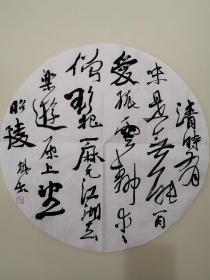 清時有
味是無能閒
愛孤雲靜愛
僧欲把一麾江海去
樂遊原上望
昭陵